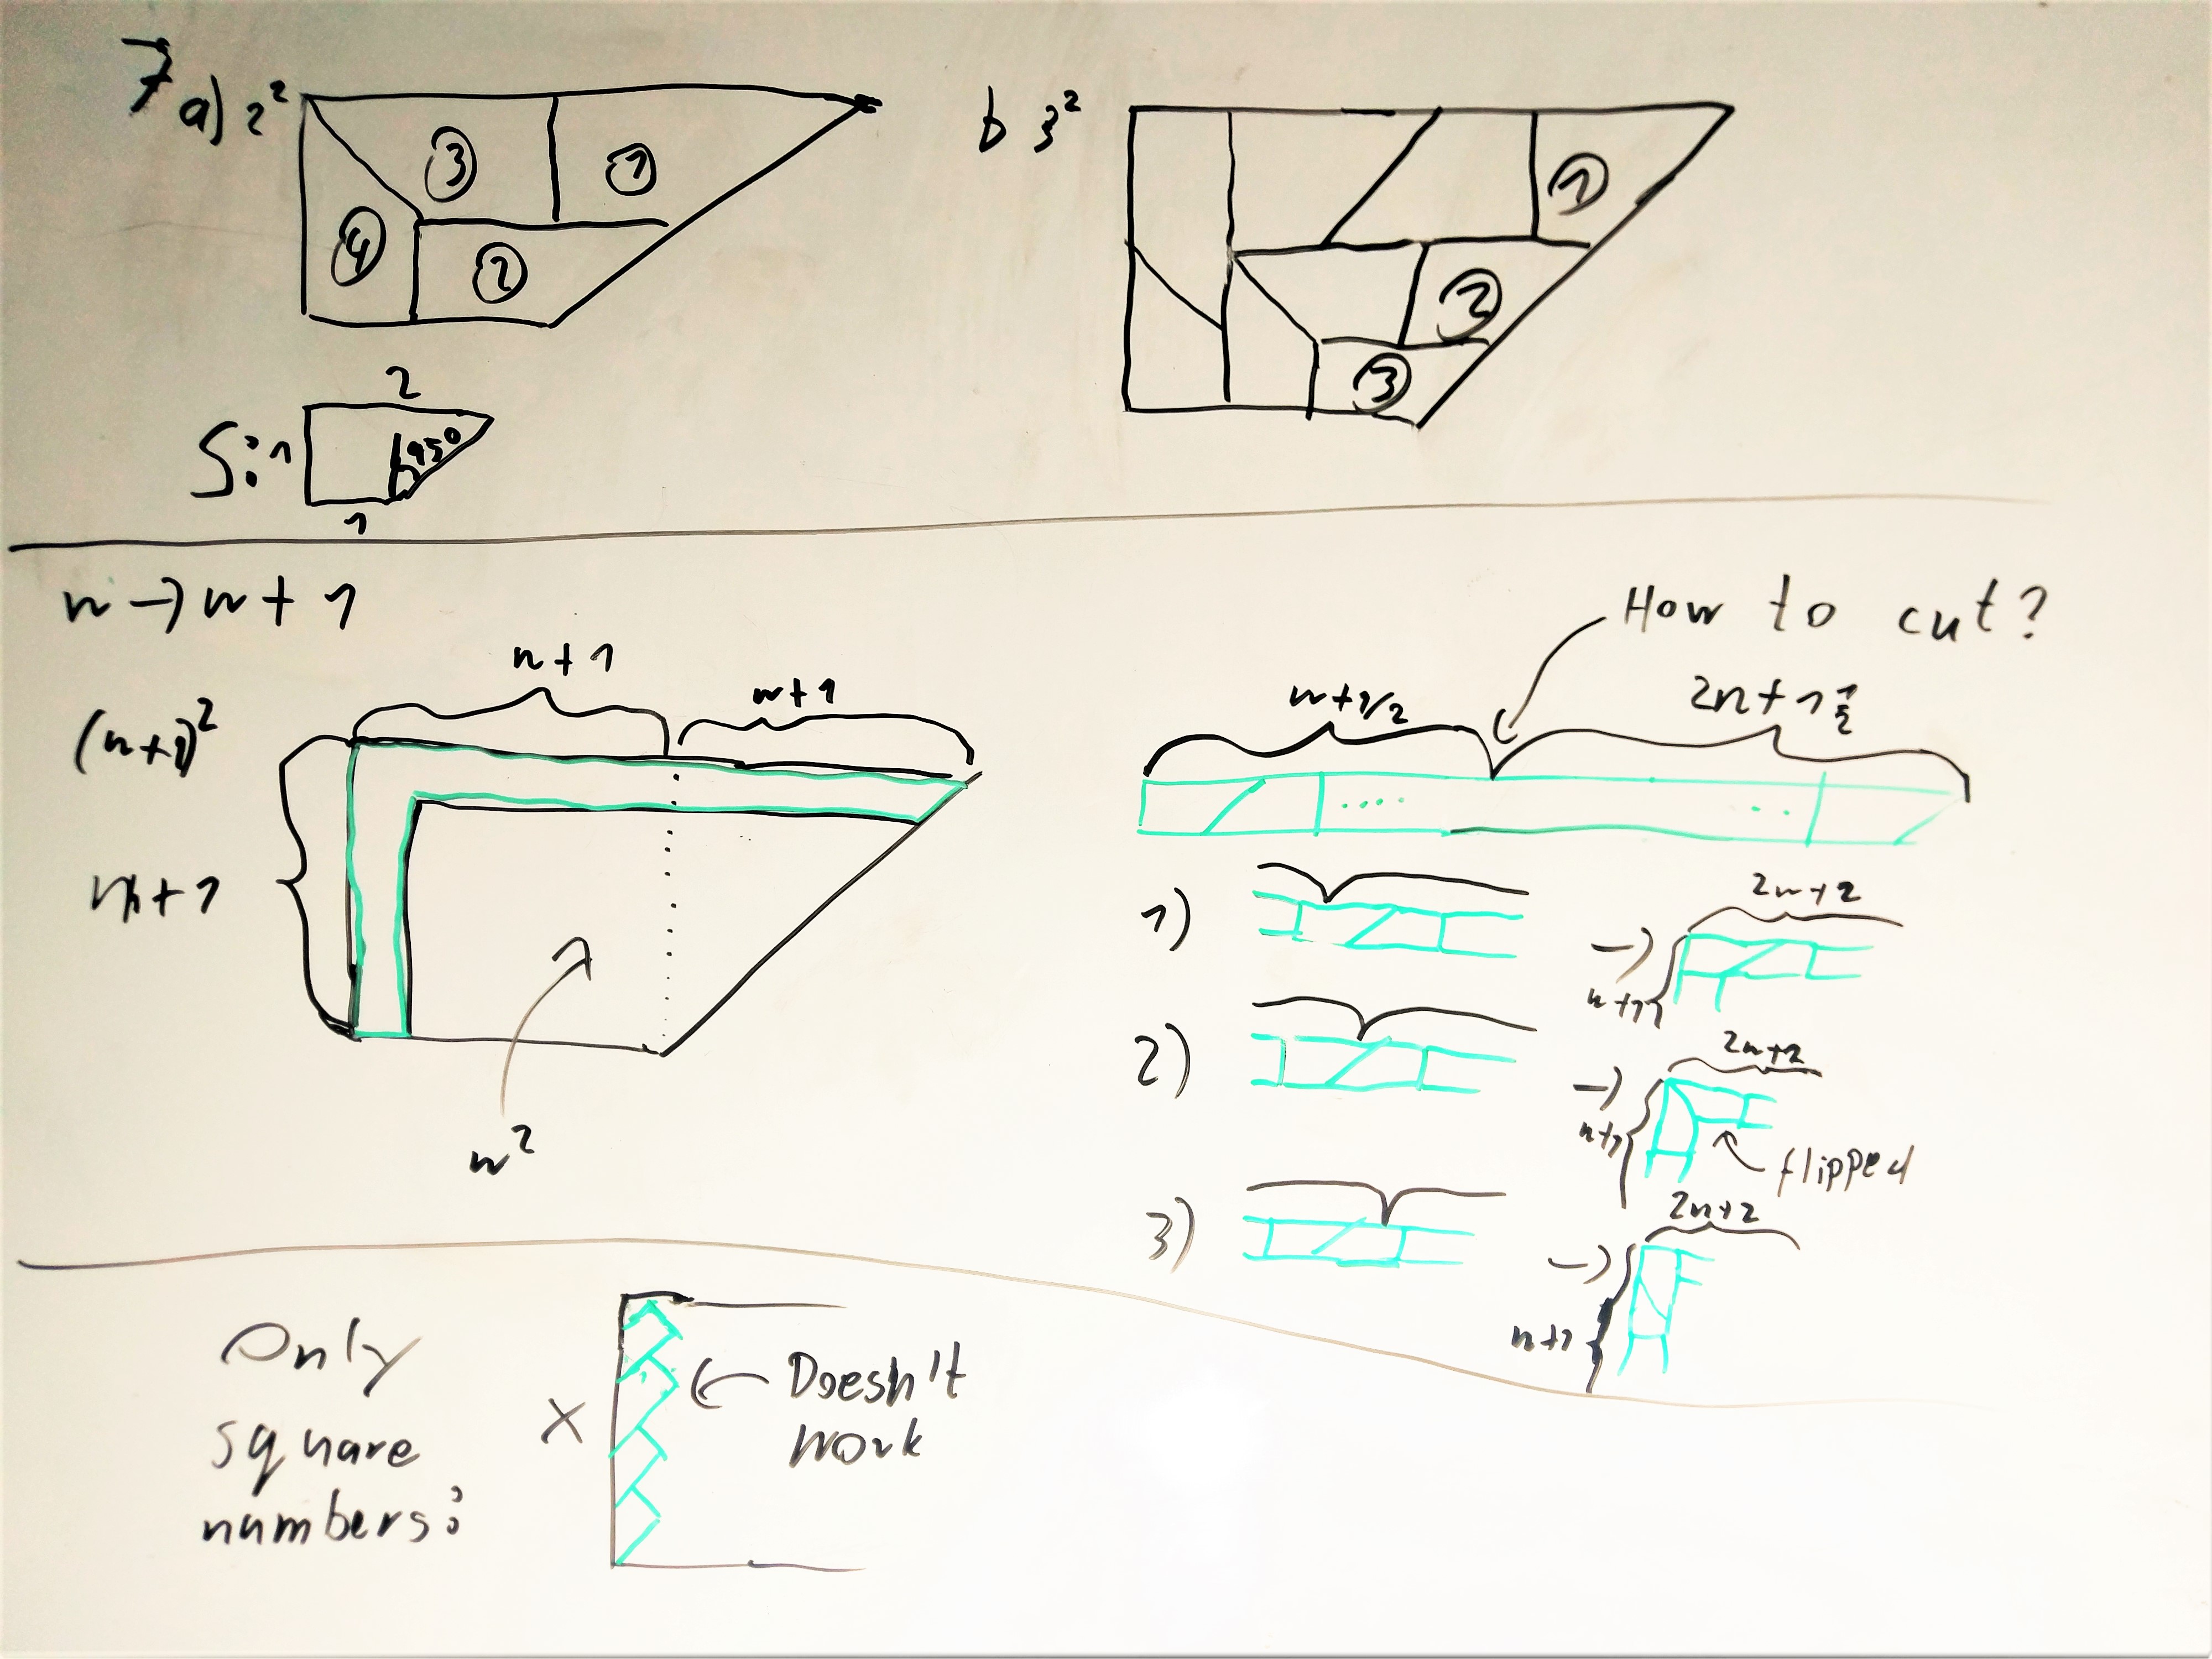 7 a) 2²
3
1
4
2
b 3²
1
2
3
2
S: 1
45°
1
n → n + 1
n + 1
n + 1
(n+1)²
n + 1
n²
How to cut?
n + 1/2
2n + 1 1/2
1)
→)
2n+2
n+1
2)
→)
2n+2
n+1
flipped
3)
→)
2n+2
n+1
Only
square
numbers:
X
Doesn't
work